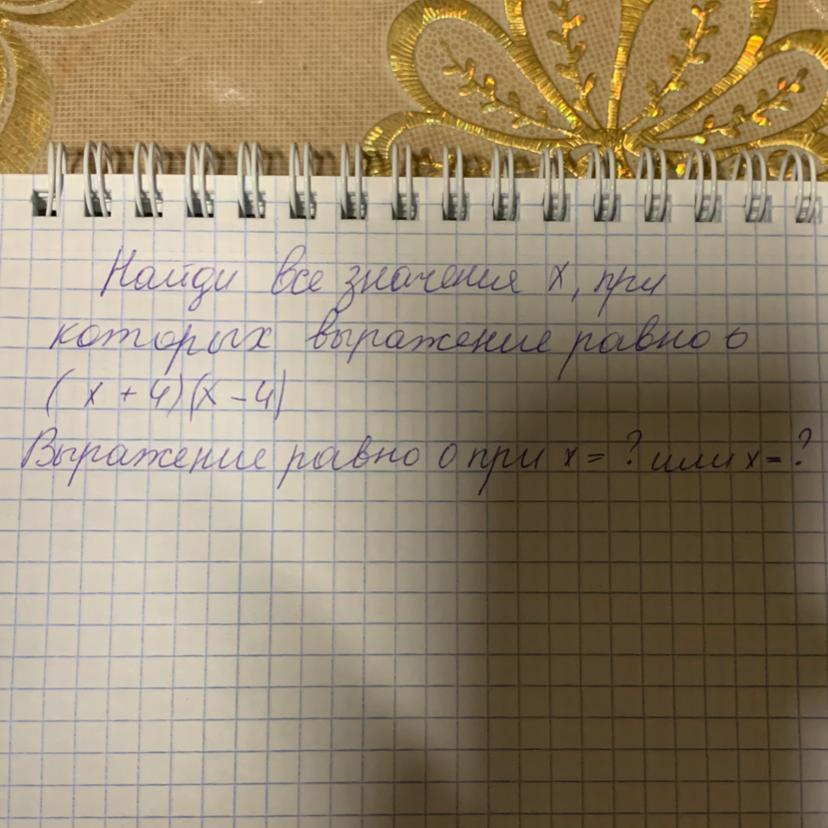 Найди все значения x, при
которых выражение равно 0
(x + 4)(x - 4)
Выражение равно 0 при x = ? или x = ?